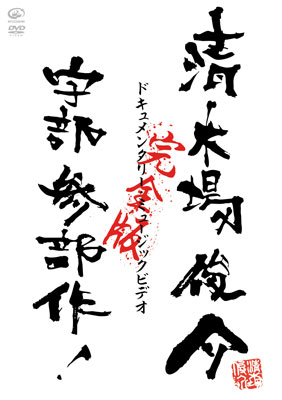 清木場俊介
ドキュメンタリーミュージックビデオ
完全版
宇部参部作!
DVD